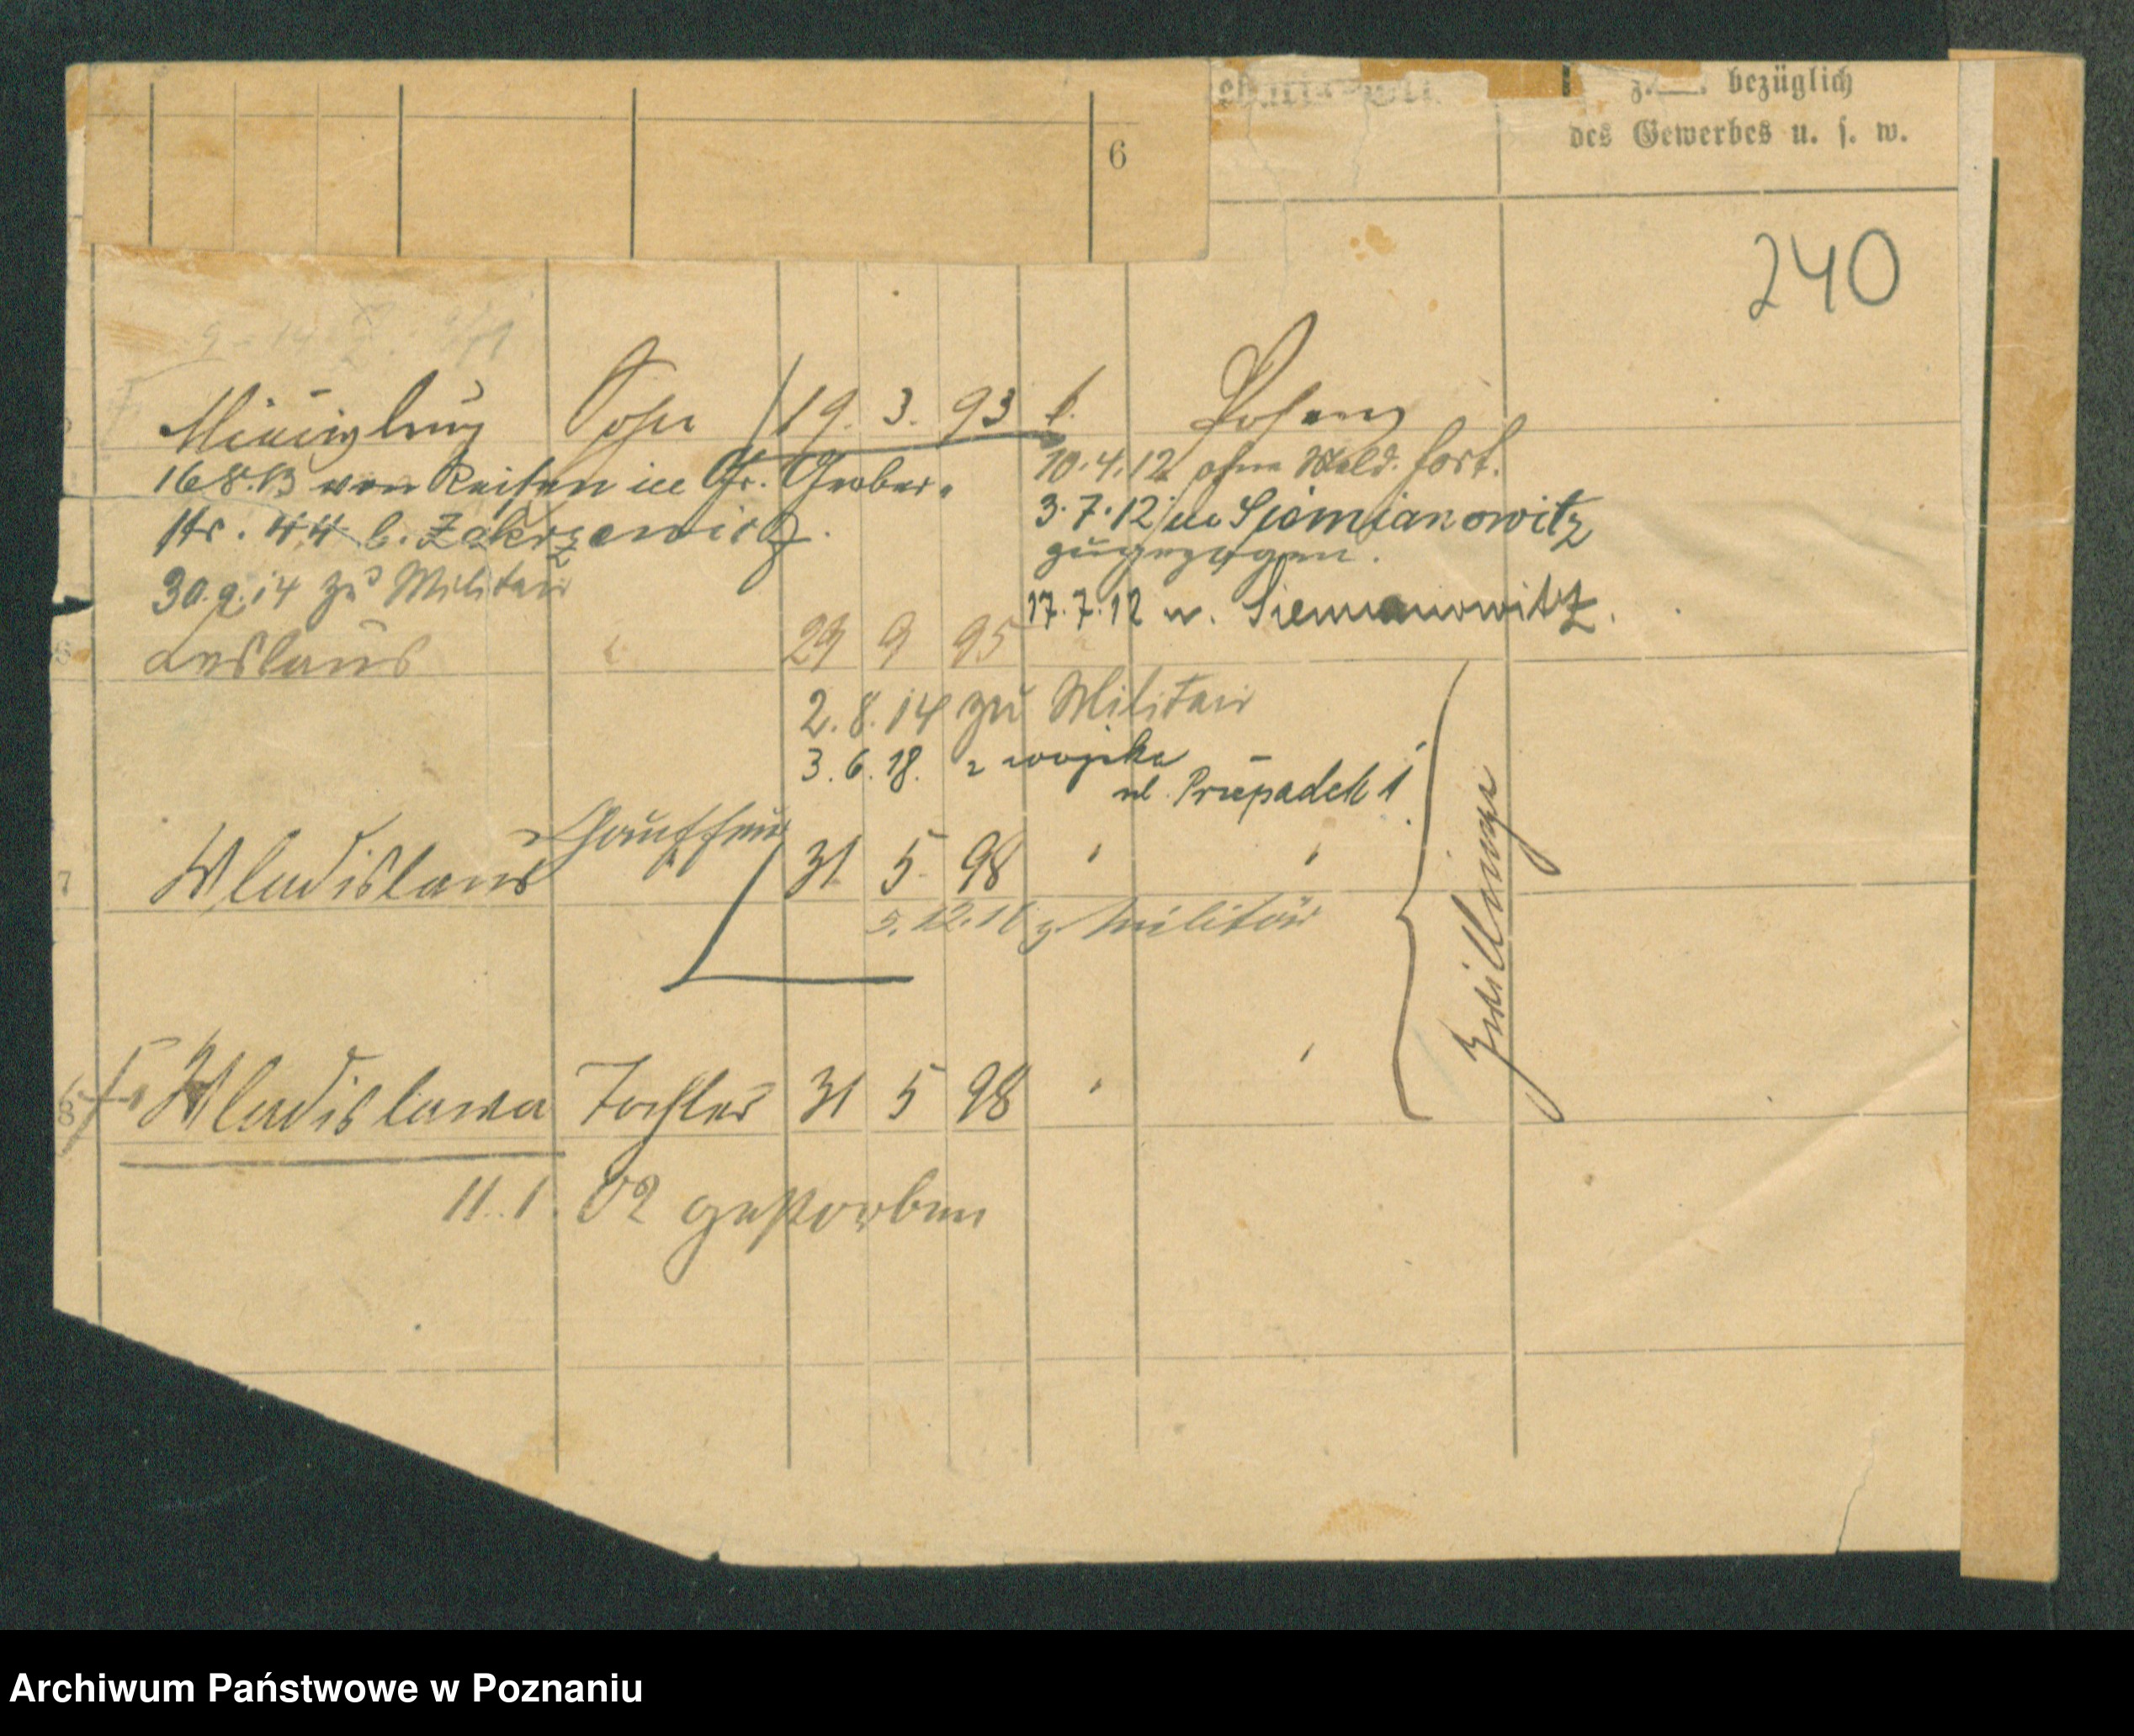 bezüglich
des Gewerbes u. s. w.
6
240
Sohn 19. 3. 93 k. Posen
16 8. 13 von Reisen in Gr. Gerber-
Str. 44 b. Zakrzewicz.
30. 9. 14 zu Militair
10. 4. 12 ohne Meld. fort.
3. 7. 12 in Siemianowitz
zugezogen.
17. 7. 12 n. Siemianowitz.
Leslaus 29 9 95
2. 8. 14 zu Militair
3. 6. 18. z wojska
ul. Przepadek 1
7 Wladislaus Chauffeur 31 5 98 " "
5. 12. 16 z. Militär
8 Wladislawa Tochter 31 5 98 " "
Zwillinge
11. 1. 02 gestorben
Archiwum Państwowe w Poznaniu